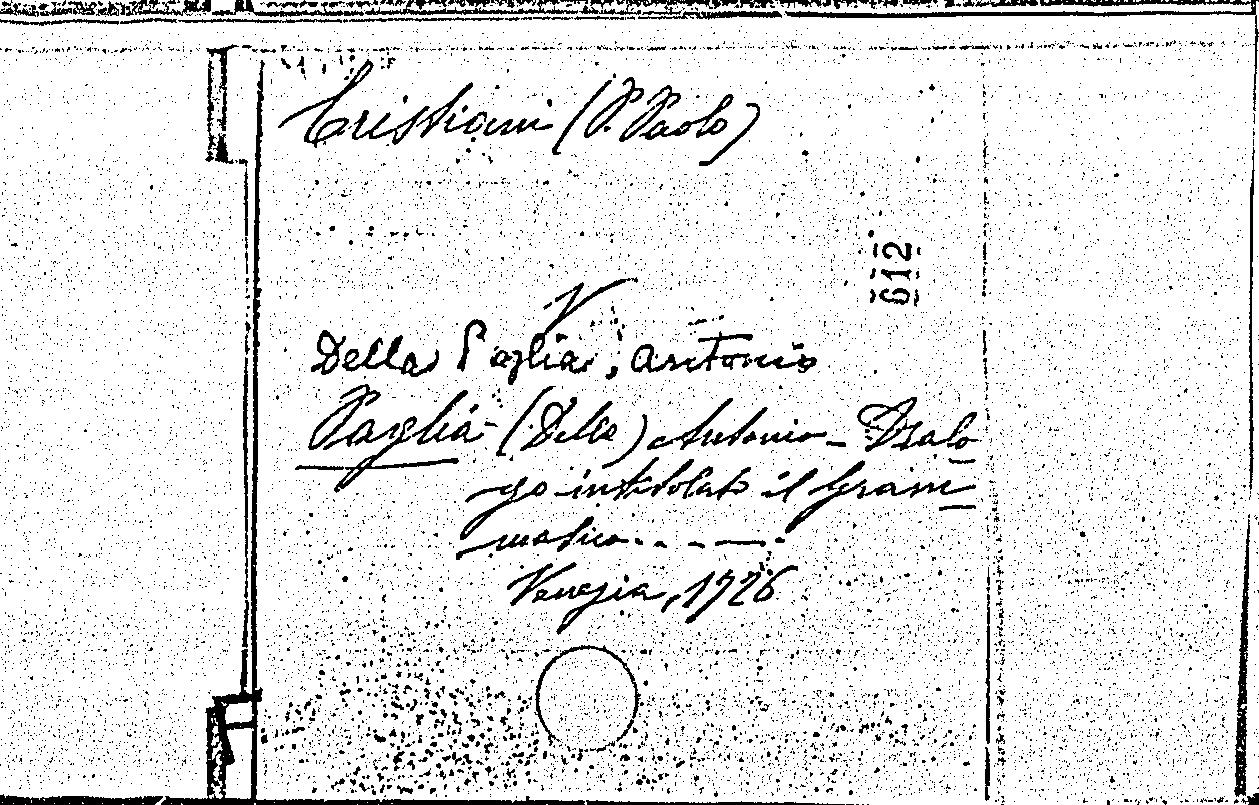 Cristiani (P. Paolo)
612
V
Della Paglia, Antonio
Paglia (Della) Antonio - Dialo
go intitolato il Gram
matico - - - - -
Venezia, 1726